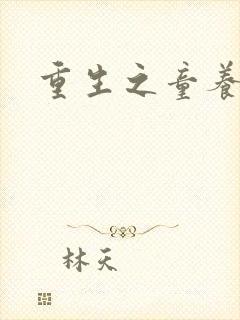 重生之童养
林天